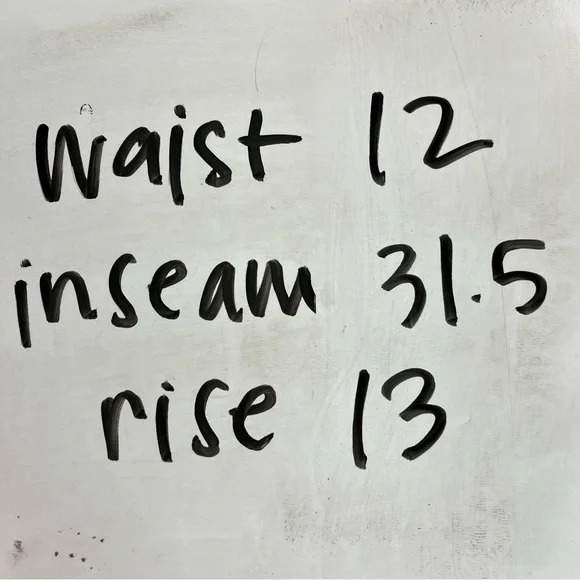 waist 12
inseam 31.5
rise 13